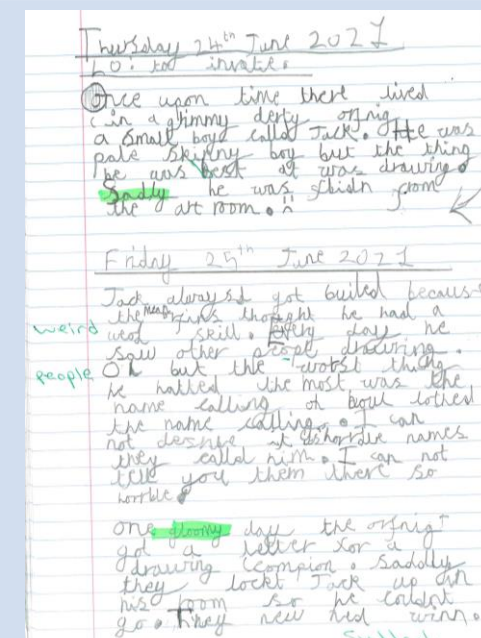 Thursday 24th June 2021
LO: to invate.
Once upon time there lived
in a grimmy derty orfnig
a small boy called Jack. He was
pale skinny boy but the thing
he was best at was drawing.
Sadly he was from
the art room.
Friday 25th June 2021
Jack always got buled because
the mean thought he had a
weird
skill. Every day he
saw other peopl drawring.
people
Oh but the worst thing
he hatted the most was the
name calling oh boy lothed
the name calling. I can
not names
they called him. I can not
tell you them there so
horrble
One gloomy day the orfnig
got a letter for a
drawing compion. Saddly
they lockt Jack up in
his room so he couldnt
go. They new hed winn.